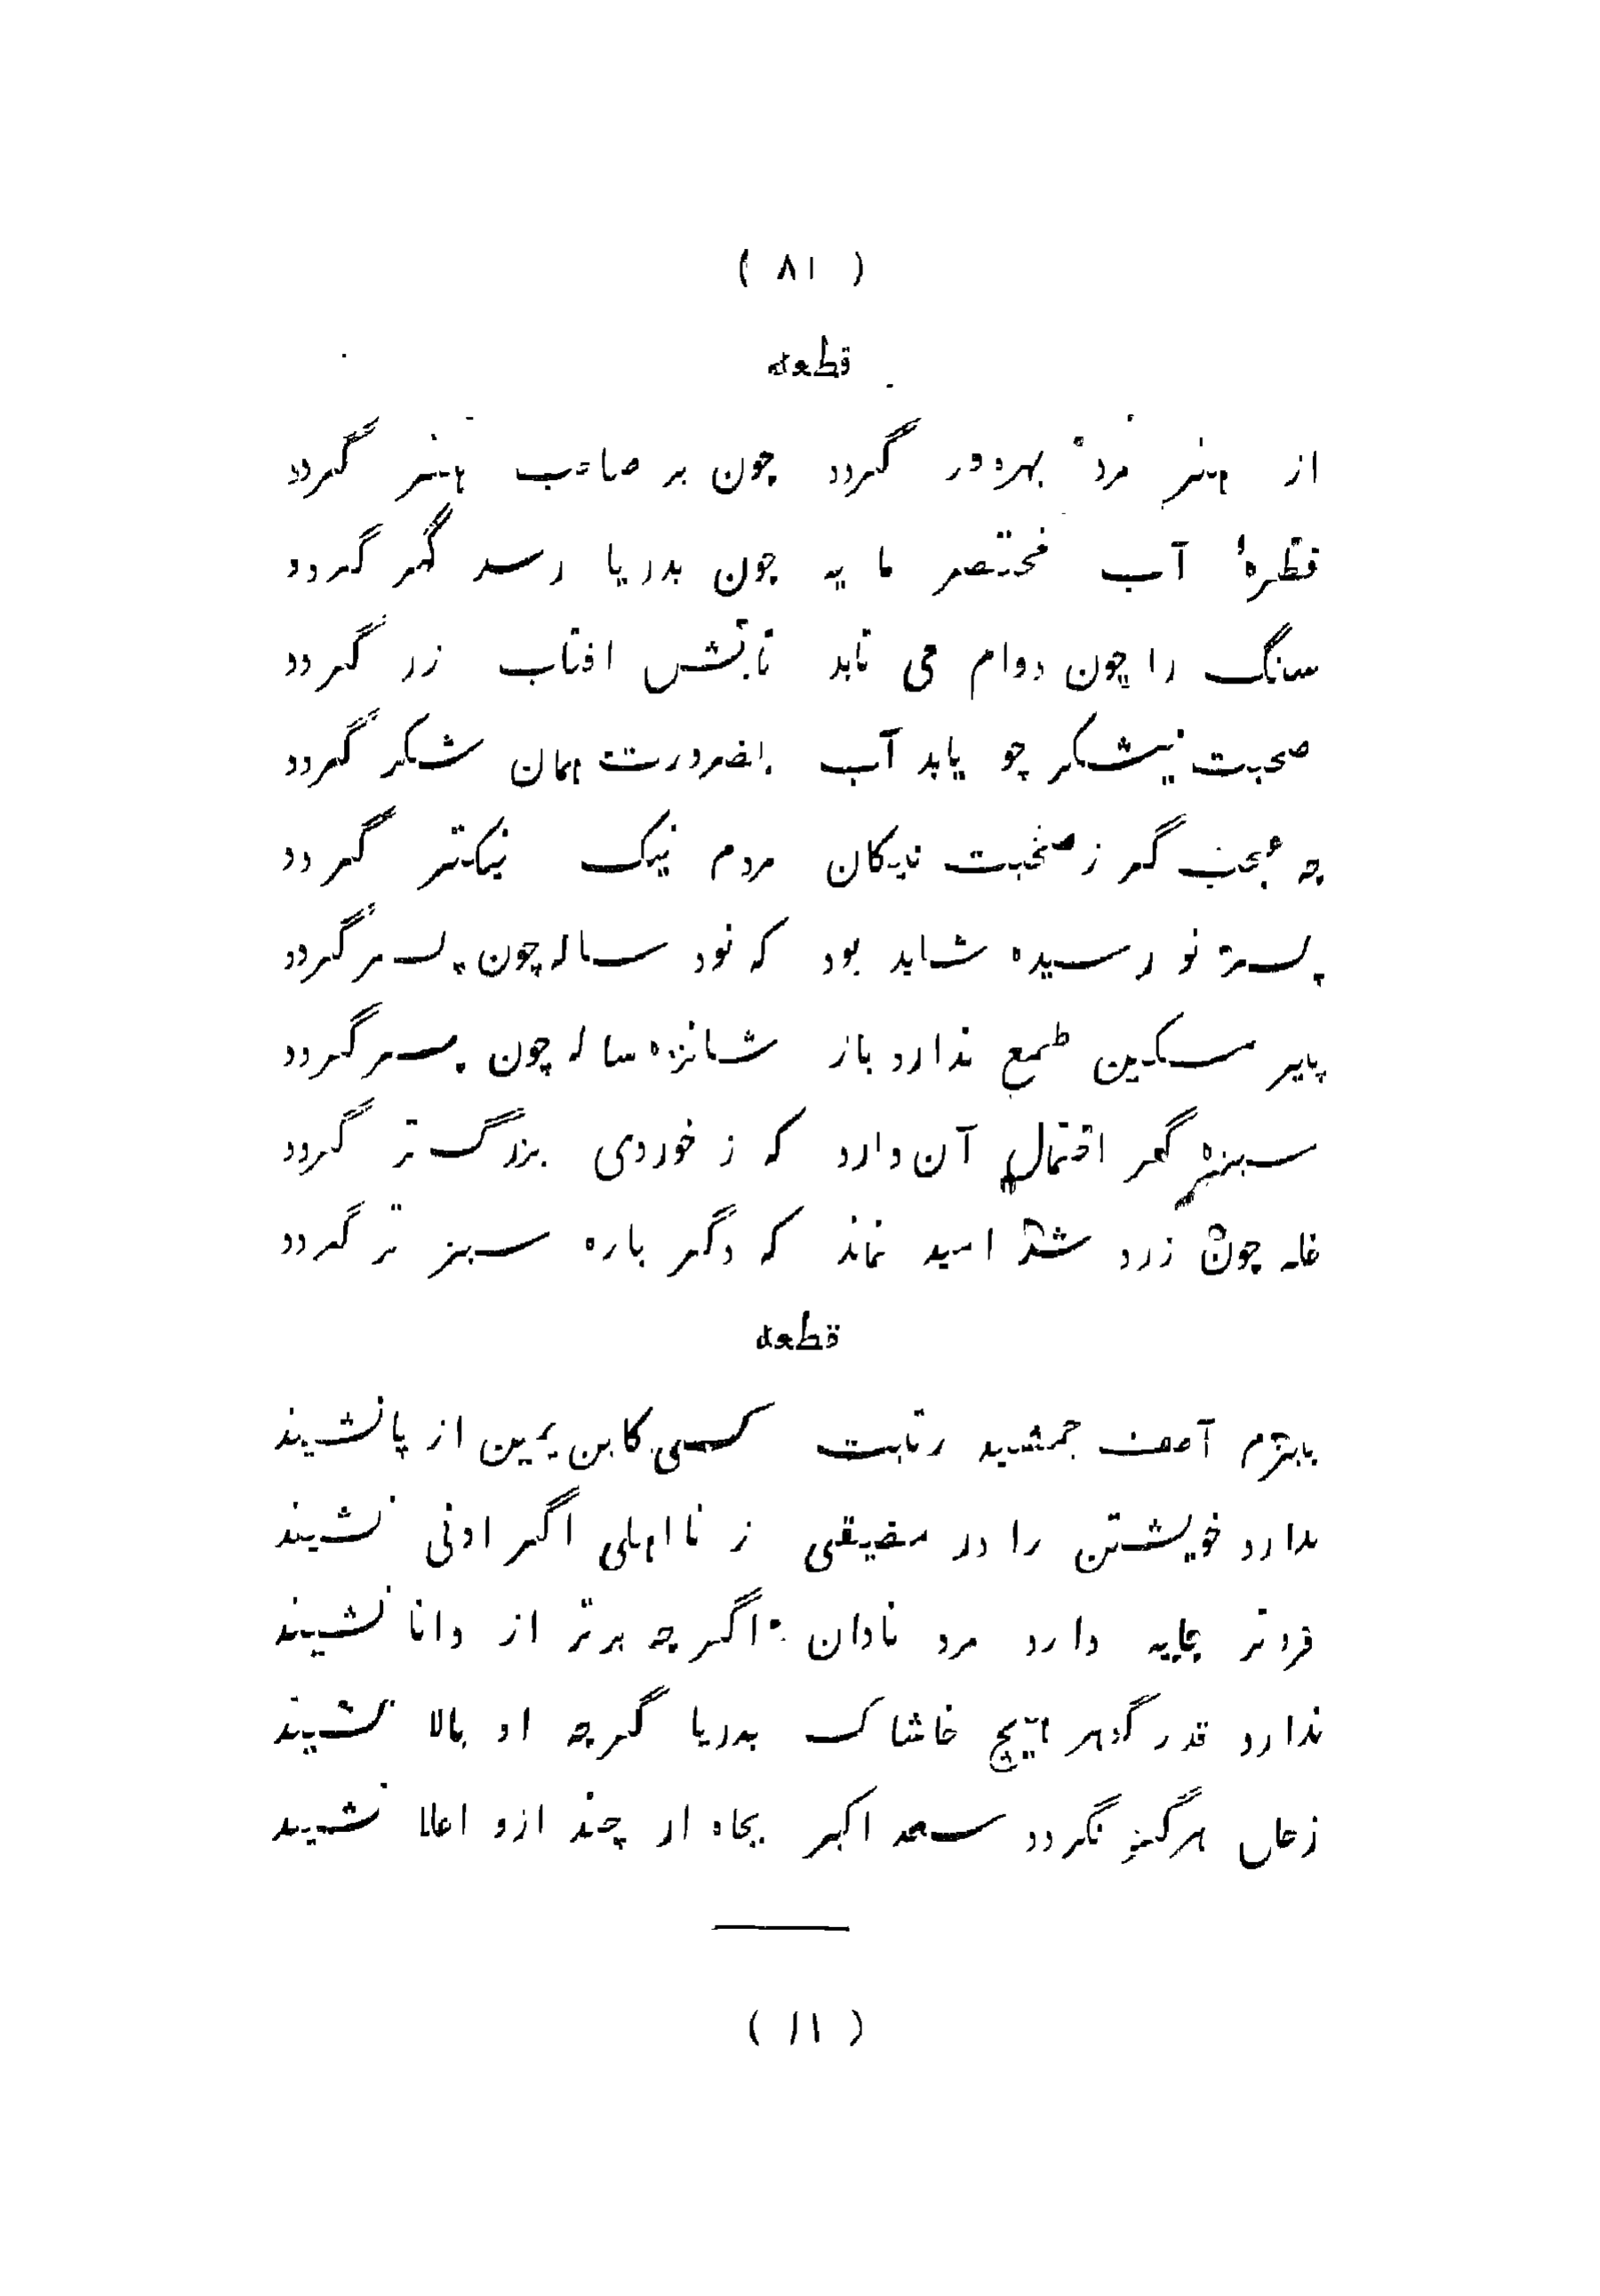 ( ٨١ )
قطعه
از هنر مرد بهره ور گردد چون بر صاحب هنر گردد
قطرهٔ آب مختصر ما یه چون بدریا رسد گهر گردد
سنگ را چون دوام می تابد تابش افتاب زر گردد
صحبت نیشکر چو یابد آب بضرورت همان شکر گردد
چه عجب گر ز صحبت نیکان مردم نیک نیکتر گردد
پستۀ نو رسیده شاید بود که نود ساله چون پسر گردد
پیر مسکین طمع ندارد باز شانزده ساله چون پسر گردد
سبزه گر احتمال آن دارد که ز خوردی بزرگ تر گردد
غله چون زرد شد امید نماند که دگر باره سبز تر گردد
قطعه
ببزم آصف جمشید رتبت کسی کابن یمین از پا نشیند
ندارد خویشتن را در مضیقی ز نا اهلی اگر ادنی نشیند
فروتر پایه دارد مرد نادان اگر چه برتر از دانا نشیند
ندارد قدر گوهر هیچ خاشاک بدریا گرچه او بالا نشیند
زحل هرگز نگردد سعد اکبر بجاه ار چند ازو اعلا نشیند
( ١١ )